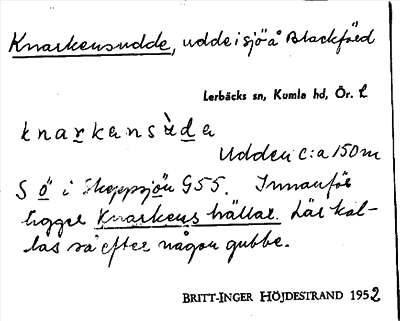 Knarkensudde, udde i sjö å Blackfjed
Lerbäcks sn, Kumla hd, Ör. L
knarkensùda
Udden c:a 150 m
S ö i Skeppsjön G55. Innanför
ligger Knarkens hällar. Lär kal-
las så efter någon gubbe.
BRITT-INGER HÖJDESTRAND 1952